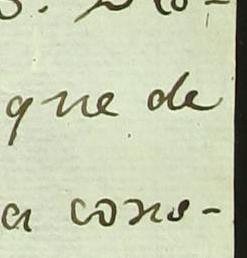 que de
a cons-